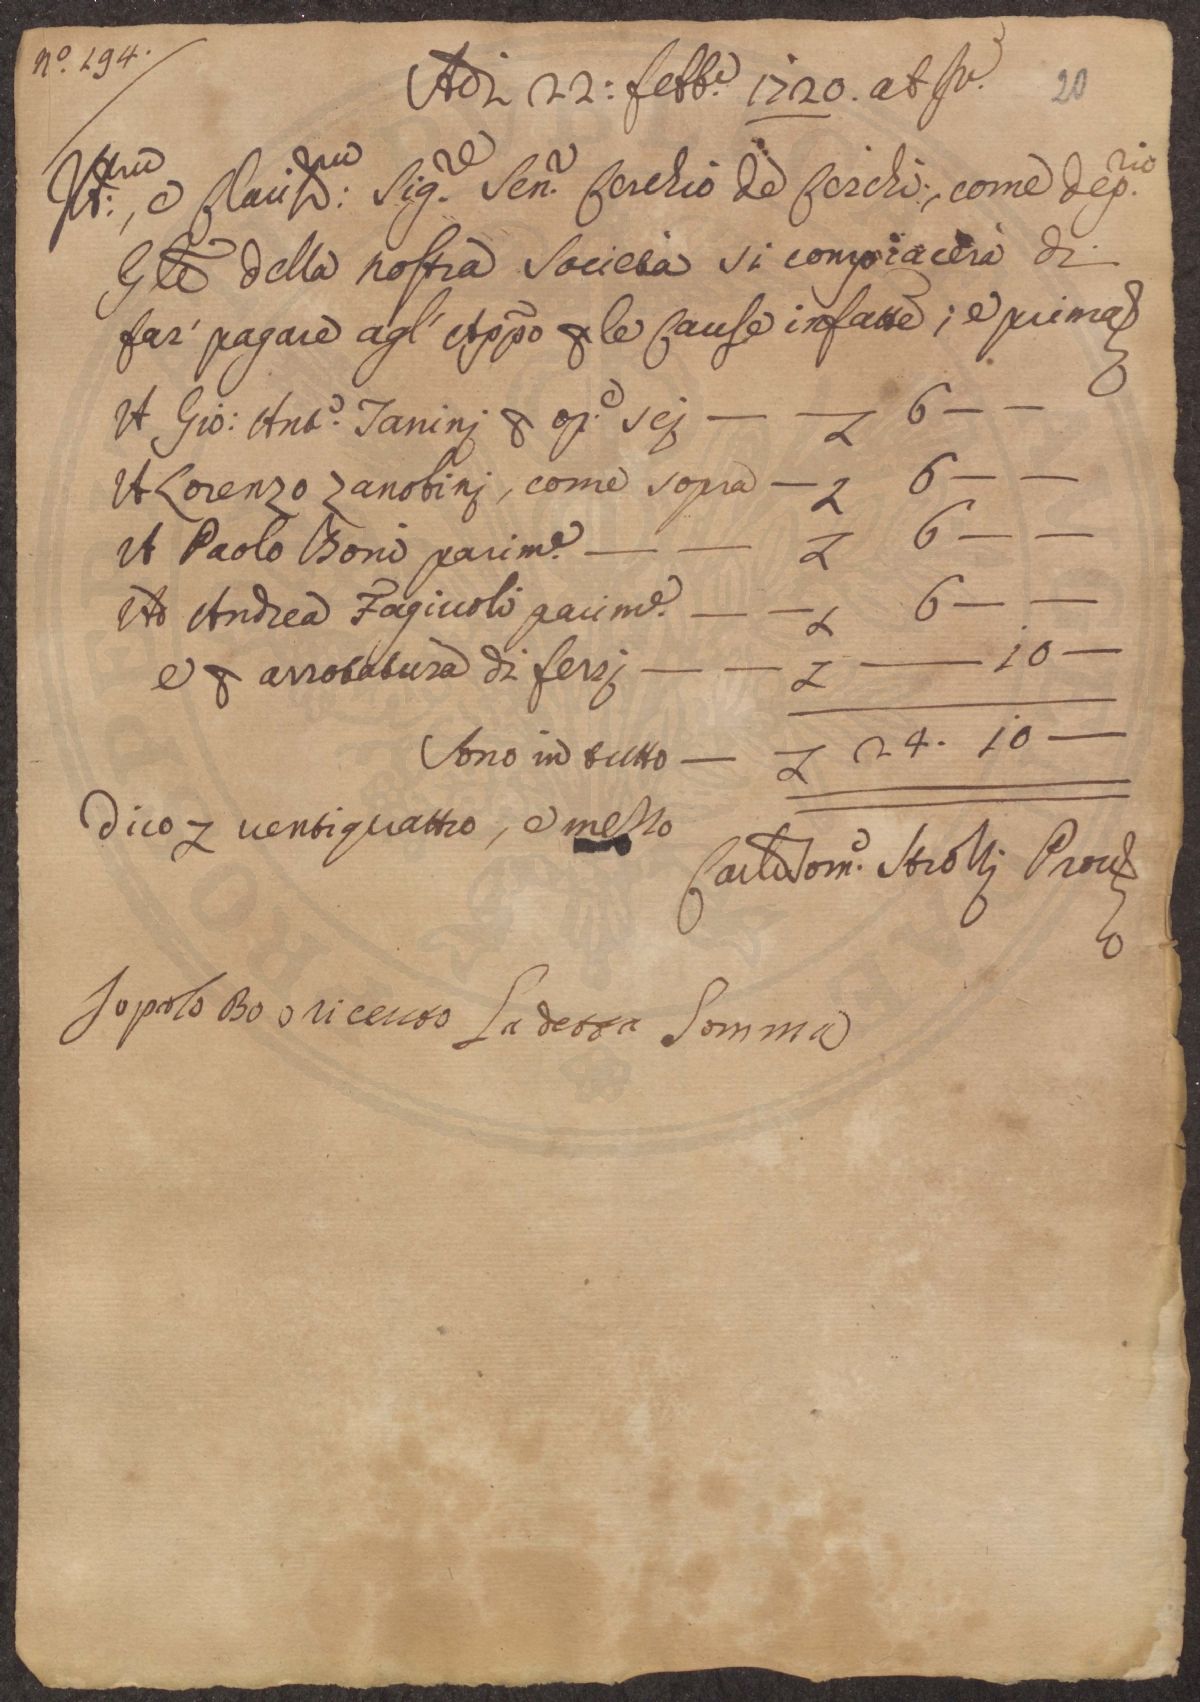 N.o 194.
Adi 22: febb.e 1720. ab In.e 20
Ill.mo, e Clariss.mo: Sig.re Sen.re Cerchio de Cerchi:, come dep.rio
Gle della nostra Società si compiacerà di
far' pagare agl' Appo p le Cause infatte; e prima
A Gio: Ant.o Taninj p op.e sej — — L 6 — —
A Lorenzo Zanobinj, come sopra — L 6 — —
A Paolo Boni parim.e — — L 6 — —
Ad Andrea Fagiuoli parim.e — — L 6 — —
e p arrotatura di ferrj — — L — 10 —
Sono in tutto — L 24. 10 —
Dico L ventiquattro, e messo
Carlo Tom.o Strozzj Prov.
Io paolo Bo o riceuto La detta Somma